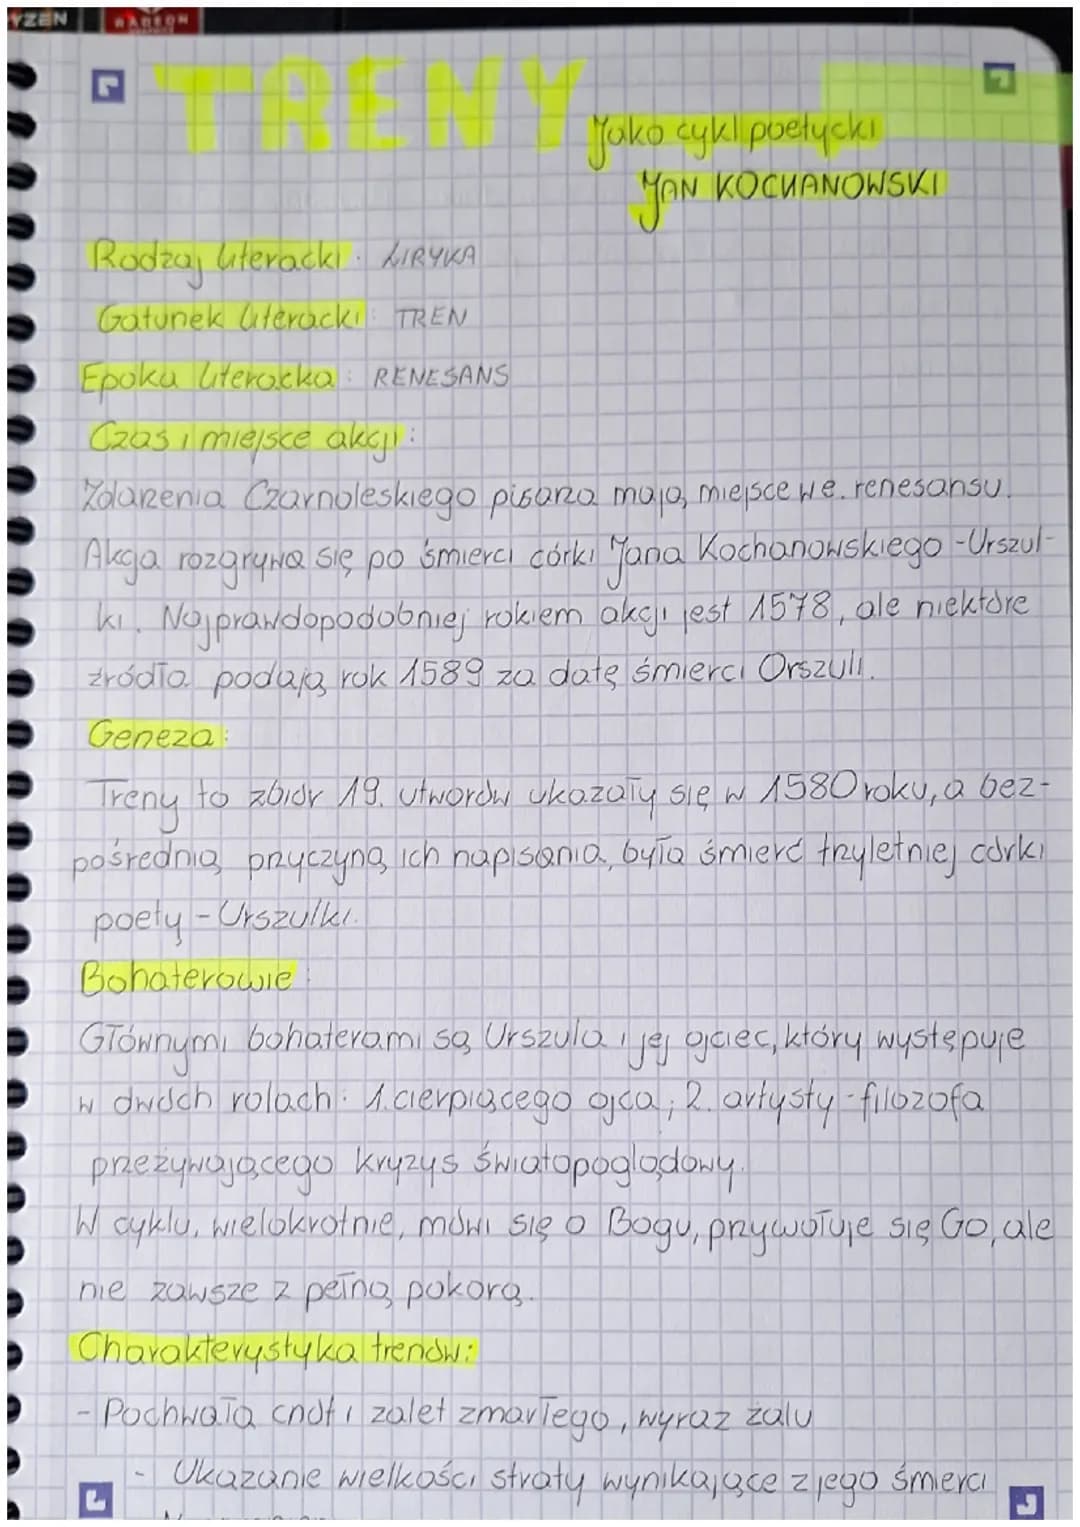 YZEN
RADEON
TRENY
Jako cykl poetycki
JAN KOCHANOWSKI
Rodzaj literacki: LIRYKA
Gatunek literacki: TREN
Epoka literacka: RENESANS
Czas i miejsce akcji:
Zdarzenia Czarnoleskiego pisarza mają miejsce we. renesansu.
Akcja rozgrywa się po śmierci córki Jana Kochanowskiego - Urszul-
ki. Najprawdopodobniej rokiem akcji jest 1578, ale niektóre
źródła podają rok 1589 za datę śmierci Orszuli.
Geneza:
Treny to zbiór 19. utworów ukazały się w 1580 roku, a bez-
pośrednią przyczyną ich napisania była śmierć trzyletniej córki
poety - Urszulki.
Bohaterowie:
Głównymi bohaterami są Urszula i jej ojciec, który występuje
w dwóch rolach: 1. cierpiącego ojca; 2. artysty - filozofa
przeżywającego kryzys światopoglądowy.
W cyklu, wielokrotnie, mówi się o Bogu, przywołuje się Go, ale
nie zawsze z pełną pokorą.
Charakterystyka trenów:
- Pochwała cnót i zalet zmarłego, wyraz żalu
- Ukazanie wielkości straty wynikające z jego śmierci